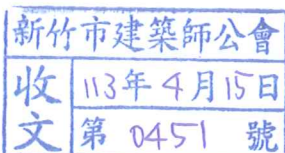 新竹市建築師公會
收文
113年4月15日
第 0451 號